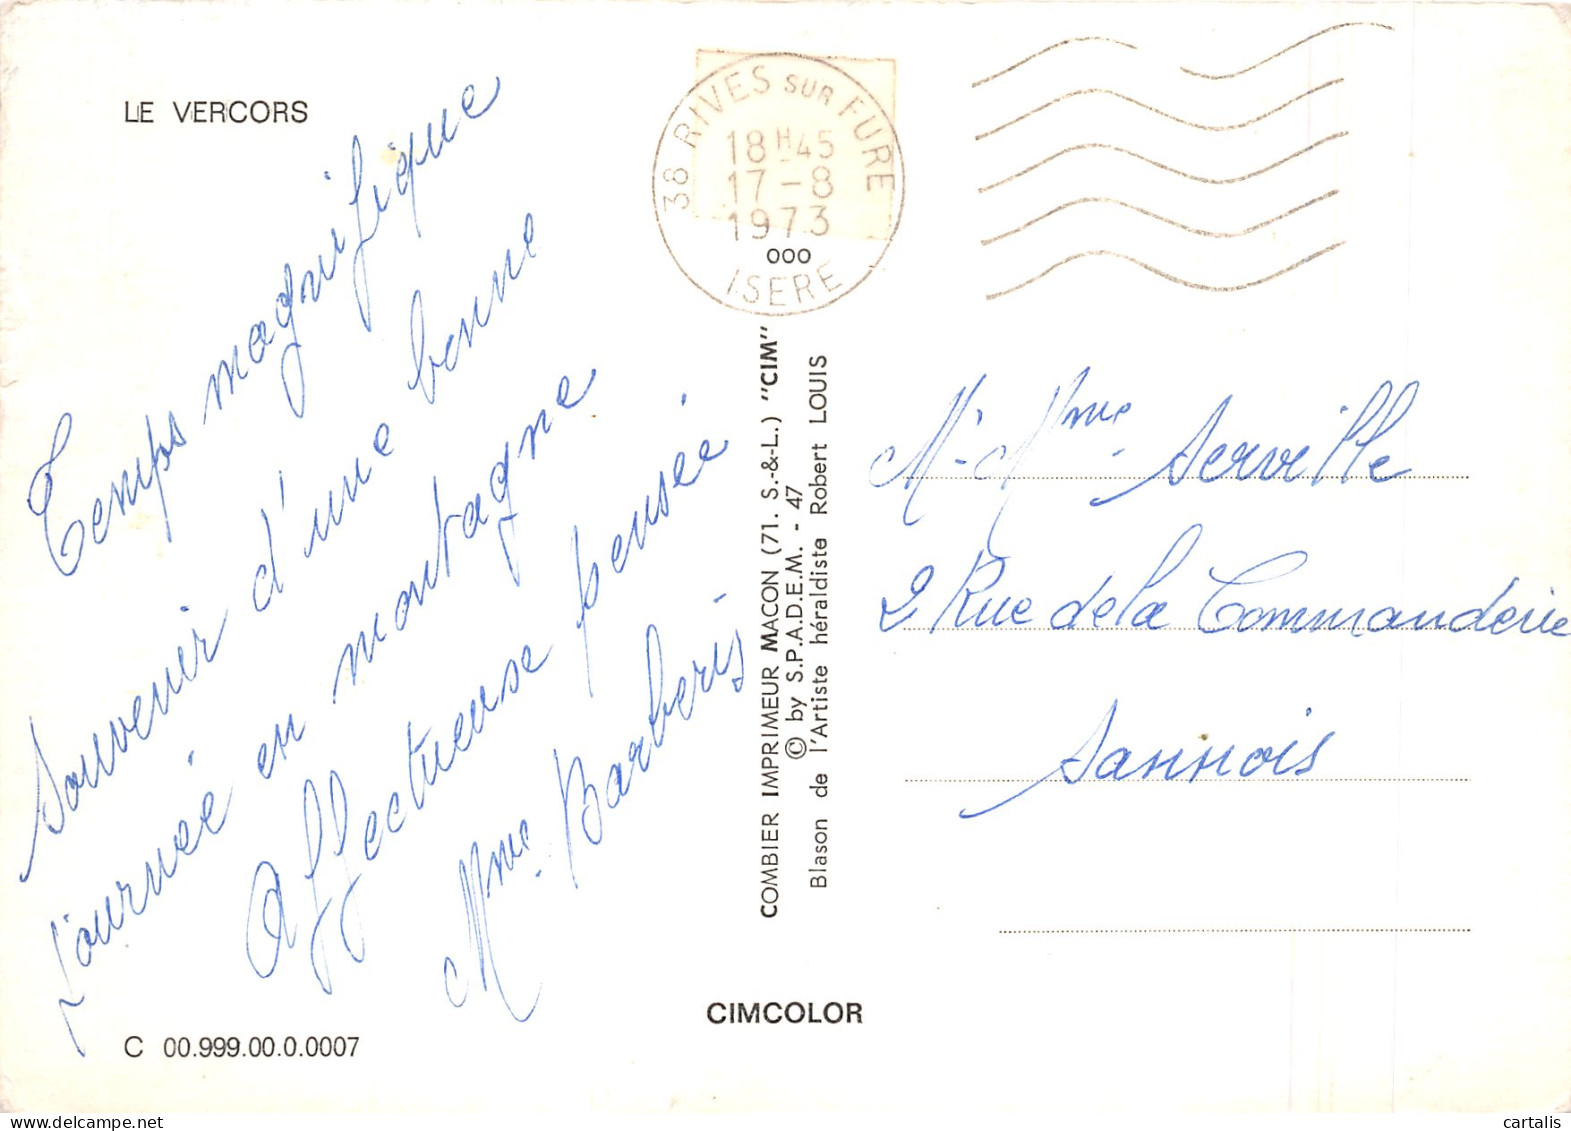 LE VERCORS
Temps magnifique
Souvenir d'une bonne
journée en montagne
Affectueuse pensée
Mme Barberis
C 00.999.00.0.0007
38 RIVES SUR FURE
18H45
17-8
1973
000
ISERE
COMBIER IMPRIMEUR MACON (71. S.-&-L.) "CIM"
© by S.P.A.D.E.M. - 47
Blason de l'Artiste héraldiste Robert LOUIS
CIMCOLOR
M-Mme Serville
2 Rue de la Commanderie
Sannois
cartalis